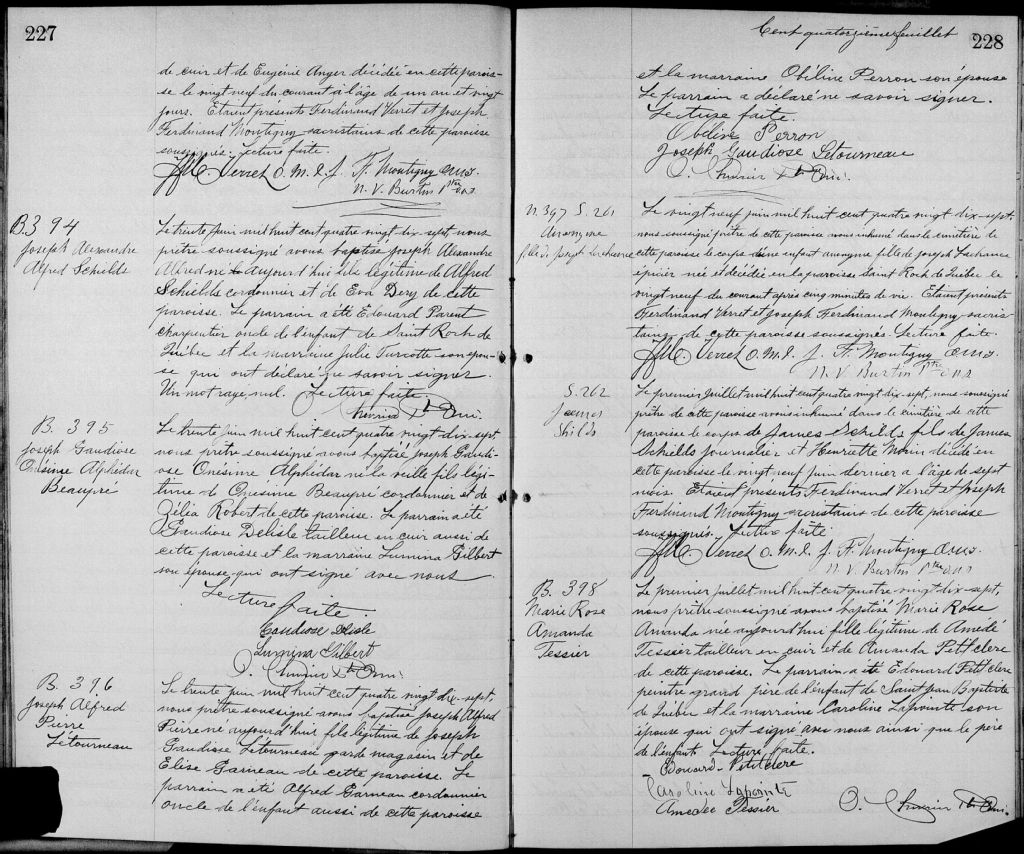 227
de cuir et de Eugénie Anger décédée en cette parois-
se le vingt neuf du courant à l'âge de un an et vingt
jours. Etaient présents Ferdinand Verret et Joseph
Ferdinand Montigny sacristains de cette paroisse
soussignés. Lecture faite.
Verret O.M.I. J. F. Montigny
N. V. Burtin Ptre O.M.I.
B 394
Joseph Alexandre
Alfred Schilds
Le trente juin mil huit cent quatre vingt dix-sept nous
prêtre soussigné avons baptisé Joseph Alexandre
Alfred né aujourd'hui fils légitime de Alfred
Schilds cordonnier et de Eva Dery de cette
paroisse. Le parrain a été Edouard Parent
charpentier oncle de l'enfant de Saint Roch de
Québec et la marraine Julie Turcotte son épou-
se qui ont déclaré ne savoir signer
Un mot rayé nul. Lecture faite.
Ptre O.M.I.
B. 395
Joseph Gaudiose
Onésime Alphédar
Beaupré
Le trente juin mil huit cent quatre vingt dix-sept,
nous prêtre soussigné avons baptisé Joseph Gaudi-
ose Onésime Alphédar né la veille fils légi-
time de Onésime Beaupré cordonnier et de
Zélia Robert de cette paroisse. Le parrain a été
Gaudiose Delisle tailleur en cuir aussi de
cette paroisse et la marraine Lumina Gilbert
son épouse qui ont signé avec nous.
Lecture faite.
Gaudiose Delisle
Lumina Gilbert
Ptre O.M.I.
B. 396
Joseph Alfred
Pierre
Létourneau
Le trente juin mil huit cent quatre vingt dix-sept,
nous prêtre soussigné avons baptisé Joseph Alfred
Pierre né aujourd'hui fils légitime de Joseph
Gaudiose Létourneau garde magasin et de
Elise Garneau de cette paroisse. Le
parrain a été Alfred Garneau cordonnier
oncle de l'enfant aussi de cette paroisse
Cent quatorzième feuillet
228
et la marraine Obéline Perron son épouse
Le parrain a déclaré ne savoir signer.
Lecture faite.
Obéline Perron
Joseph Gaudiose Létourneau
Ptre O.M.I.
N. 397 S. 261
Anonyme
fille de Joseph Lachance
Le vingt neuf juin mil huit cent quatre vingt dix-sept,
nous soussigné prêtre de cette paroisse avons inhumé dans le cimetière de
cette paroisse le corps d'une enfant anonyme fille de Joseph Lachance
épicier née et décédée en la paroisse Saint Roch de Québec le
vingt neuf du courant après cinq minutes de vie. Etaient présents
Ferdinand Verret et Joseph Ferdinand Montigny sacris-
tains de cette paroisse soussignés Lecture faite.
Verret O.M.I. J. F. Montigny
N. V. Burtin Ptre O.M.I.
S. 262
James
Shilds
Le premier juillet mil huit cent quatre vingt dix-sept, nous soussigné
prêtre de cette paroisse avons inhumé dans le cimetière de cette
paroisse le corps de James Schilds fils de James
Schilds journalier et Henriette Morin décédé en
cette paroisse le vingt neuf juin dernier à l'âge de sept
mois. Etaient présents Ferdinand Verret et Joseph
Ferdinand Montigny sacristains de cette paroisse
soussignés. Lecture faite
Verret O.M.I. J. F. Montigny
N. V. Burtin Ptre O.M.I.
B. 398
Marie Rose
Amanda
Tessier
Le premier juillet mil huit cent quatre vingt dix-sept,
nous prêtre soussigné avons baptisé Marie Rose
Amanda née aujourd'hui fille légitime de Amédé
Tessier tailleur en cuir et de Amanda Petitclerc
de cette paroisse. Le parrain a été Edouard Petitclerc
peintre grand père de l'enfant de Saint Jean Baptiste
de Québec et la marraine Caroline Lapointe son
épouse qui ont signé avec nous ainsi que le père
de l'enfant. Lecture faite.
Edouard Petitclerc
Caroline Lapointe
Amedée Tessier
Ptre O.M.I.